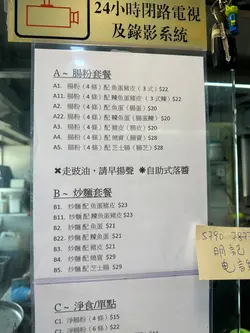 24小時閉路電視
及錄影系統
A ~ 腸粉套餐
A1. 腸粉 (4 條) 配 魚蛋豬皮 (3 式) $22
A11. 腸粉 (4 條) 配 辣魚蛋豬皮 (3 式辣) $22
A2. 腸粉 (4 條) 配 魚蛋 (腸蛋) $20
A22. 腸粉 (4 條) 配 辣魚蛋 (腸蛋辣) $20
A3. 腸粉 (4 條) 配 豬皮 (腸皮) $20
A4. 腸粉 (4 條) 配 燒賣 (腸賣) $28
A5. 腸粉 (4 條) 配 芝士腸 (腸芝) $28
✖走豉油、請早揚聲 ✸自助式落醬
B ~ 炒麵套餐
B1. 炒麵 配 魚蛋豬皮 $23
B11. 炒麵 配 辣魚蛋豬皮 $23
B2. 炒麵 配 魚蛋 $21
B22. 炒麵 配 辣魚蛋 $21
B3. 炒麵 配 豬皮 $21
B4. 炒麵 配 燒賣 $29
B5. 炒麵 配 芝士腸 $29
C ~ 淨食/單點
C1. 淨腸粉 (4 條) $15
淨腸粉 (6 條) $22
明記